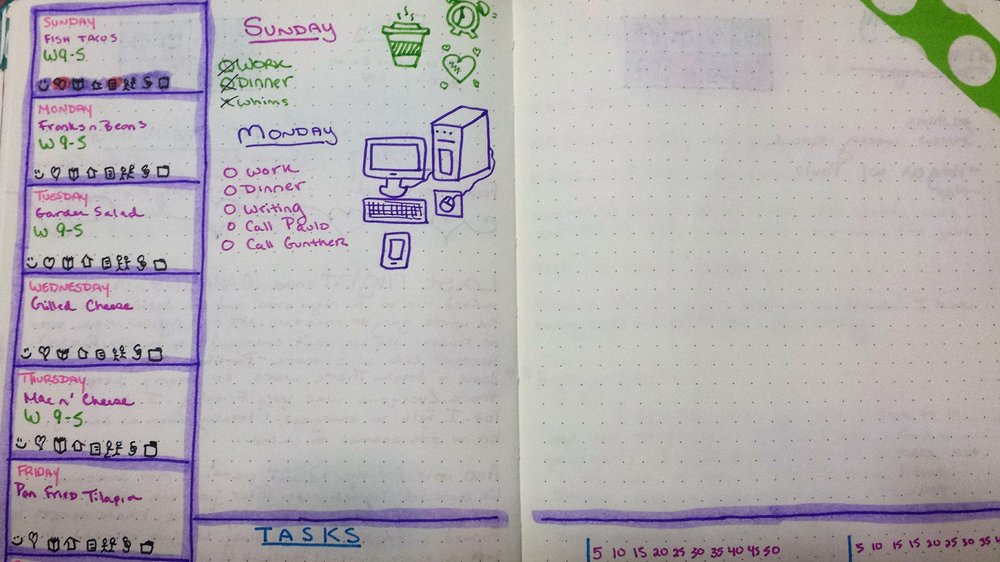 SUNDAY
FISH TACOS
W 9-5
MONDAY
Franks n. Beans
W 9-5
TUESDAY
Garden Salad
W 9-5
WEDNESDAY
Grilled Cheese
THURSDAY
Mac n' Cheese
W 9-5
FRIDAY
Pan Fried Tilapia
SUNDAY
WORK
Dinner
Whims
MONDAY
Work
Dinner
Writing
Call Paulo
Call Gunther
TASKS
5 10 15 20 25 30 35 40 45 50
5 10 15 15 20 25 30 35